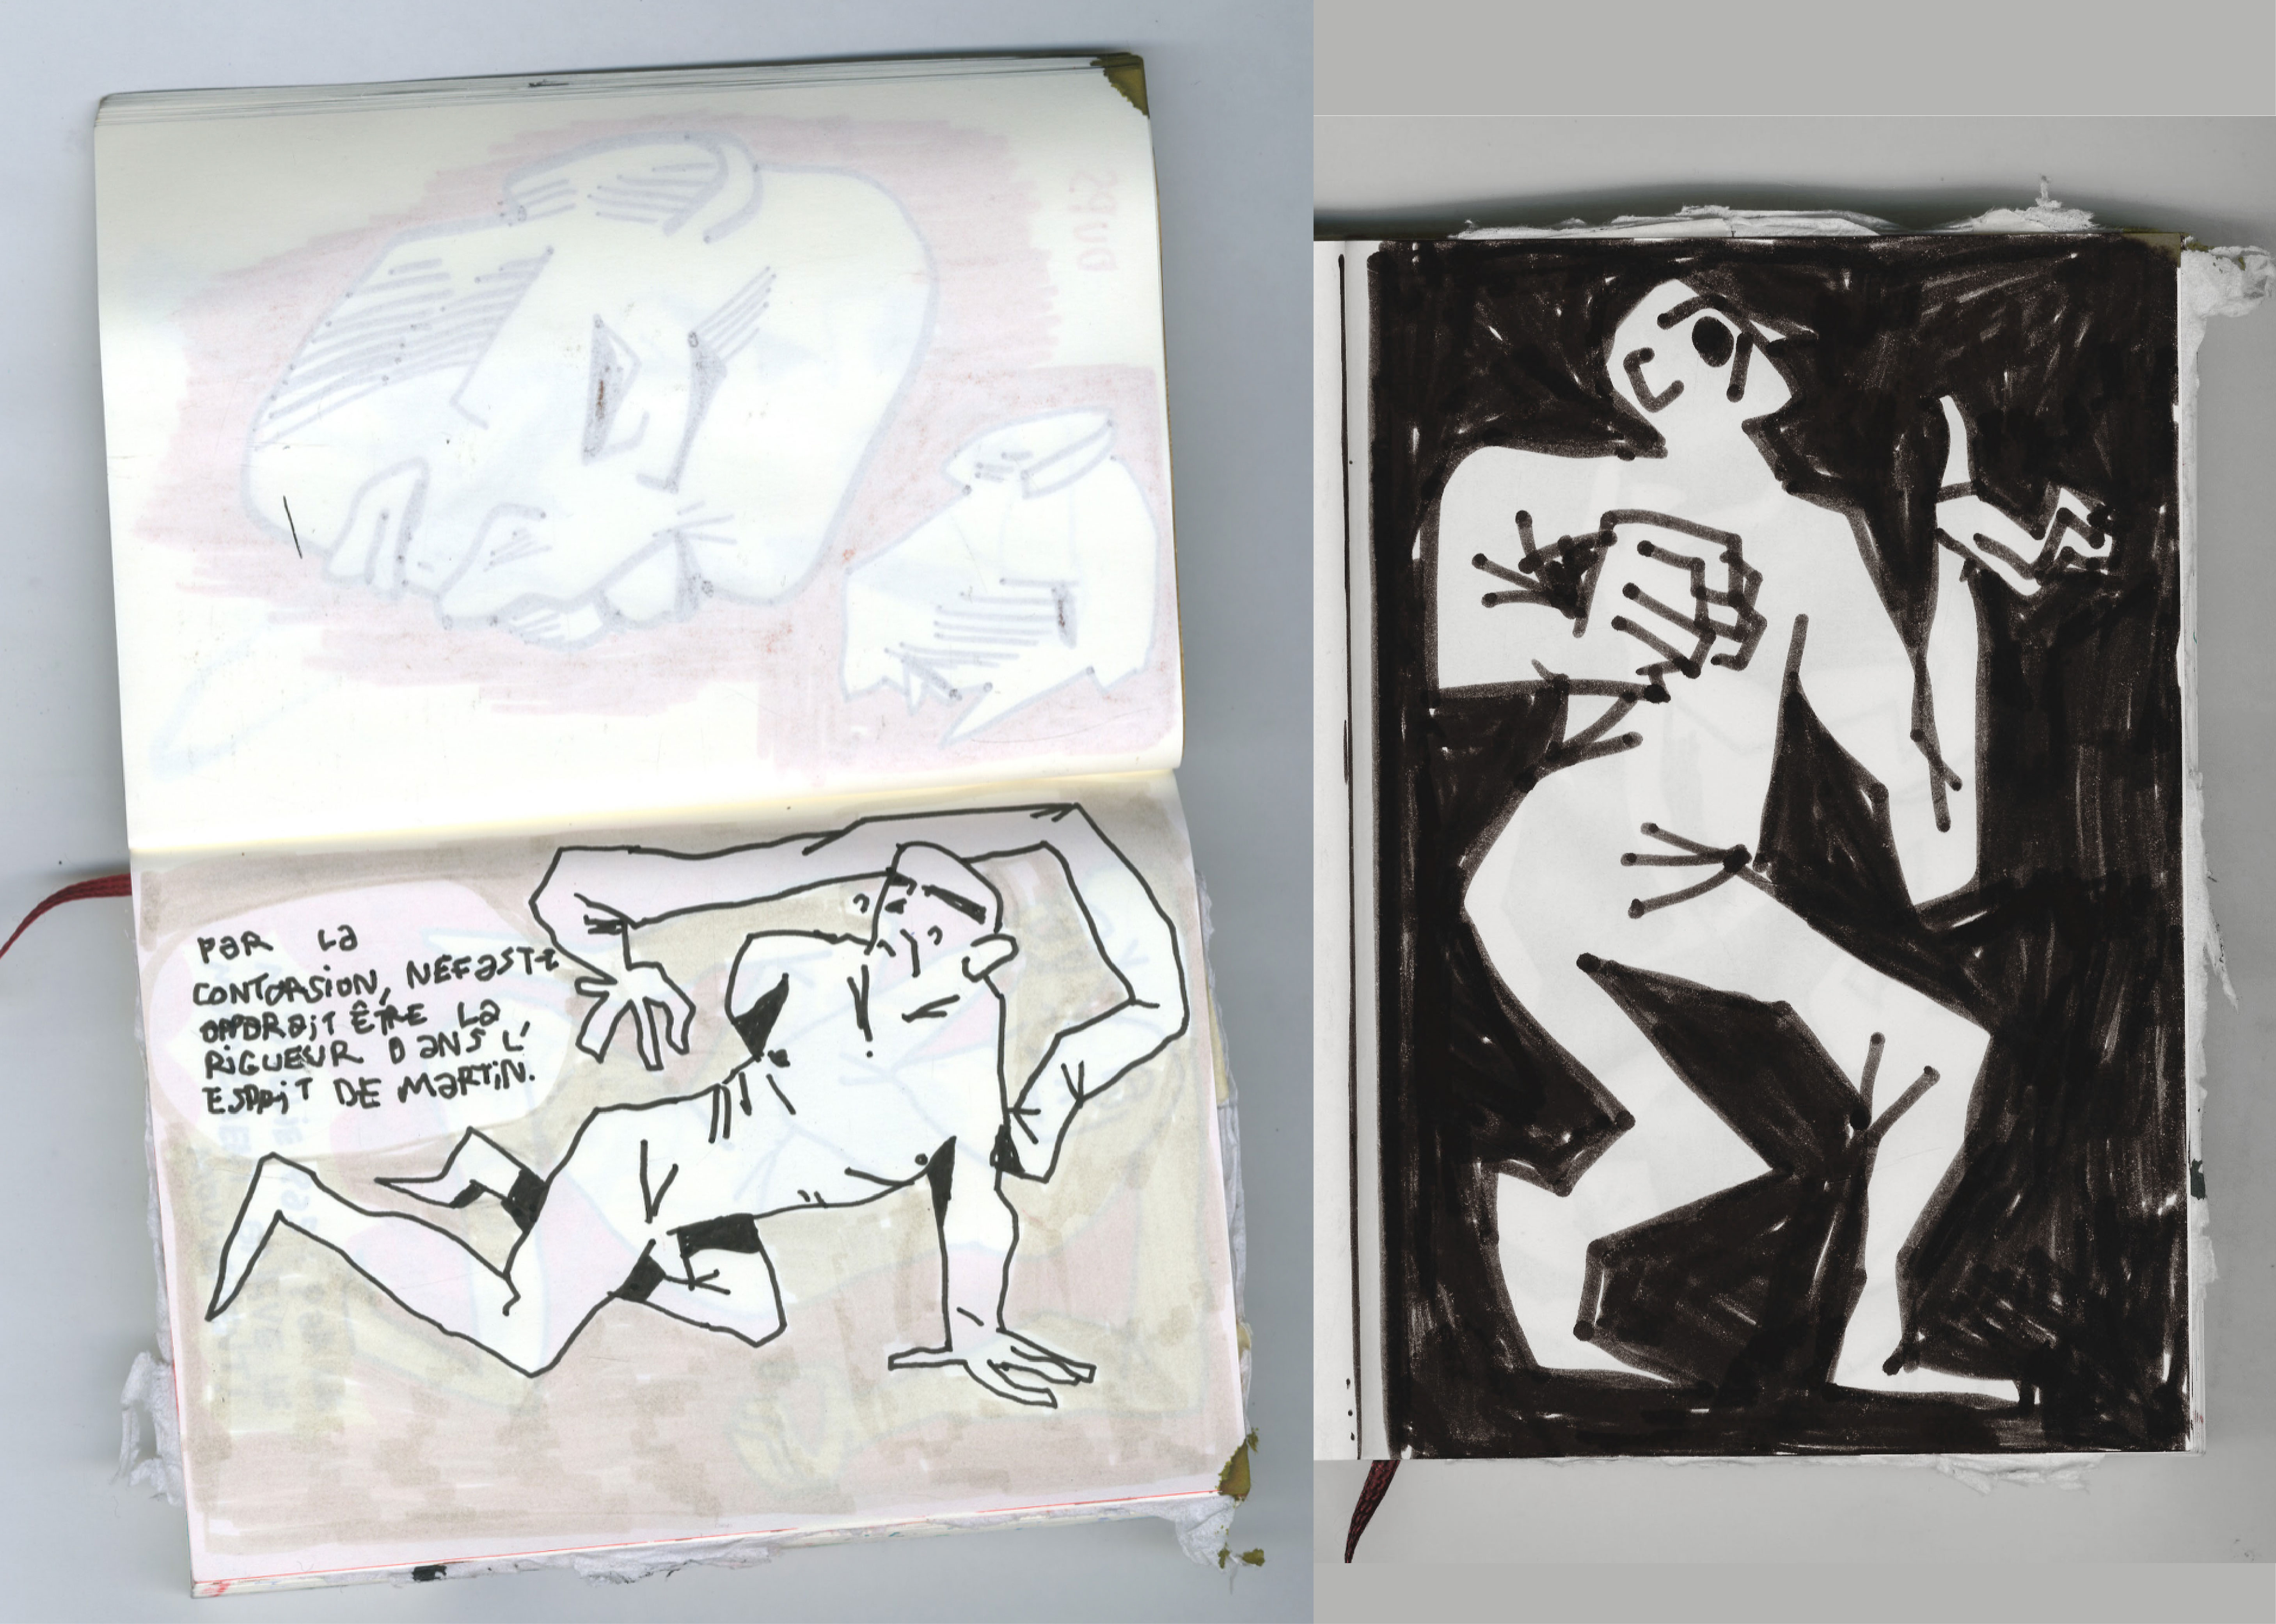 Par La
CONTORSION, NEFASTE
apparaît ÊTRE La
RiGUEUR DaNS L'
ESPRiT DE MaRTiN.